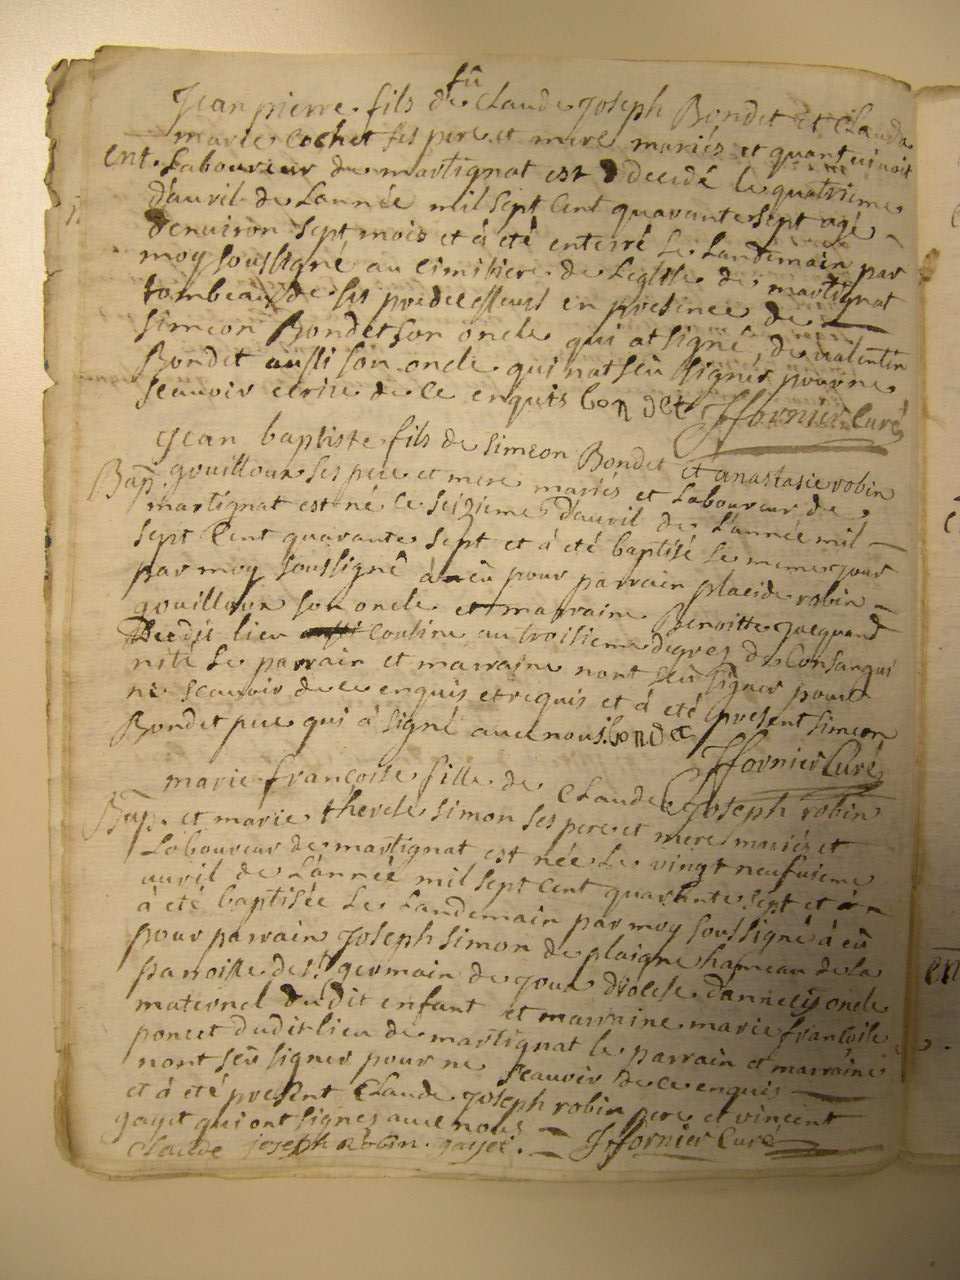 Jean pierre fils de fû Claude Joseph Bondet et Clauda
marie cochet ses pere et mere mariés et quant vivoit
ent. Laboureur de martignat est decidé le quatrieme
d'auril de L'année mil sept Cent quarante sept agé
d'environ sept mois et à été enterré le Landemain par
moy soussigné au cimitiere de L'eglise de martignat
tombeau de ses predecesseurs en presence de
simeon Bondet son oncle qui at signé, de valentin
Bondet aussi son oncle qui nat sëu signer pour ne
sçauoir ecrire de ce enquis bondet JFfornier Curé
Jean baptiste fils de simeon Bondet et anastasie robin
Bap. gouilloux ses pere et mere mariés et Laboureur de
martignat est né le seizieme d'auril de L'année mil
sept Cent quarante sept et à été baptisé le meme jour
par moy soussigné à eü pour parrain placide robin
gouilloux son oncle et marraine Benoitte Jacquand
dudit lieu cousine au troisieme degrez de Consangui
nité le parrain et marraine nont sëu signer pour
ne sçauoir de ce enquis et requis et à été present simeon
Bondet pere qui à signé auec nous. bondet
JFfornier Curé
marie françoise fille de Claude Joseph robin
Bap. et marie therese simon ses pere et mere mariés et
Laboureur de martignat est née le vingt neufuieme
auril de L'année mil sept cent quarante sept et
à été baptisée le Landemain par moy soussigné à eü
pour parrain Joseph simon de plaigne hameau de la
parroisse de st. germain de Joux diocese d'annecy oncle
maternel dudit enfant et marraine marie françoise
poncet dudit lieu de martignat le parrain et marraine
nont sëu signer pour ne sçauoir de ce enquis
et à été present Claude Joseph robin pere et vincent
gayet qui ont signes auec nous
claude joseph robin. gayet. JFfornier Curé